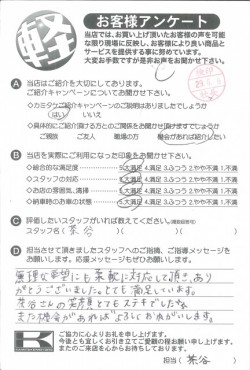 軽
お客様アンケート
当店では、お買い上げ頂いたお客様の声を可能
な限り現場に反映し、お客様により良い商品と
サービスを提供する事に努めています。
大変お手数ですが是非お声をお聞かせ下さい。
A 当店はご紹介を大切にしております。
ご紹介キャンペーンについてお聞かせ下さい。
◇カミタケご紹介キャンペーンのご説明はありましたでしょうか
はい いいえ
◇具体的にご紹介頂ける方との関係をお聞かせ頂けますでしょうか
ご親族 ご友人 職場の方 機会があればご紹介したい
B 当店を実際にご利用になった印象をお聞かせ下さい。
◇総合的な満足度 5.大満足 4.満足 3.ふつう 2.やや不満 1.不満
◇スタッフの対応 5.大満足 4.満足 3.ふつう 2.やや不満 1.不満
◇お店の雰囲気、清掃 5.大満足 4.満足 3.ふつう 2.やや不満 1.不満
◇納車時のお車の状態 5.大満足 4.満足 3.ふつう 2.やや不満 1.不満
C 評価したいスタッフがいれば教えてください。
スタッフ名( 茶谷 )
D 担当させて頂きましたスタッフへのご指摘、ご指導メッセージを
お願いします。応援メッセージもぜひお願いします。
無理な要望にも柔軟に対応して頂き、あり
がとうございました。とても満足しています。
茶谷さんの笑顔とてもステキでしたな。
また機会があれば よろしくおねがいします。
ご協力に心よりお礼を申し上げます。
今後とも宜しくお引き立てご愛顧の程お願い申し上げます。
またのご来店を心からお待ちしております。
担当( 茶谷 )